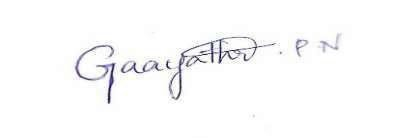 Gaayathri. P N